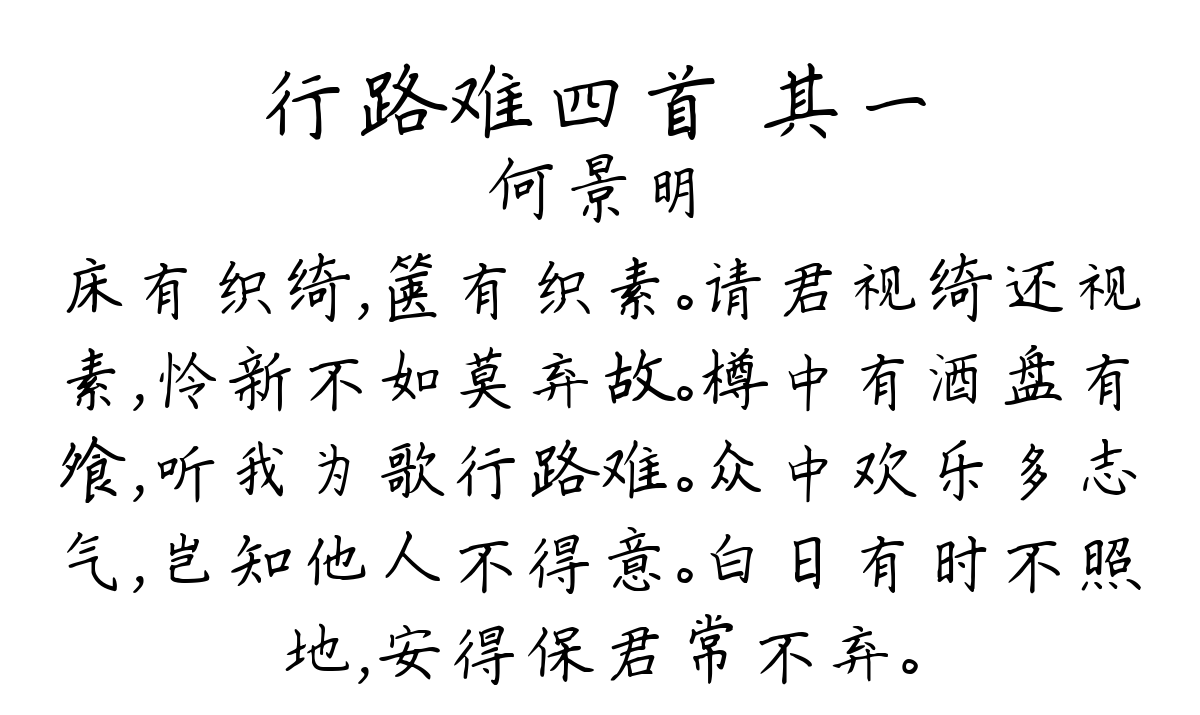 行路难四首 其一
何景明
床有织绮,箧有织素。请君视绮还视
素,怜新不如莫弃故。樽中有酒盘有
飧,听我为歌行路难。众中欢乐多志
气,岂知他人不得意。白日有时不照
地,安得保君常不弃。